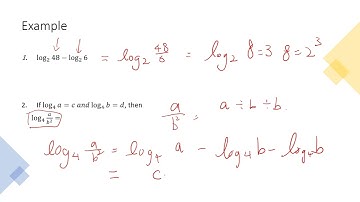 Example
1. log₂ 48 − log₂ 6 = log₂ 48/6 = log₂ 8 = 3 8 = 2³
2. If log₄ a = c and log₄ b = d, then a/b² = a ÷ b ÷ b.
log₄ a/b² =
log₄ a/b² = log₄ a − log₄ b − log₄ b
= c